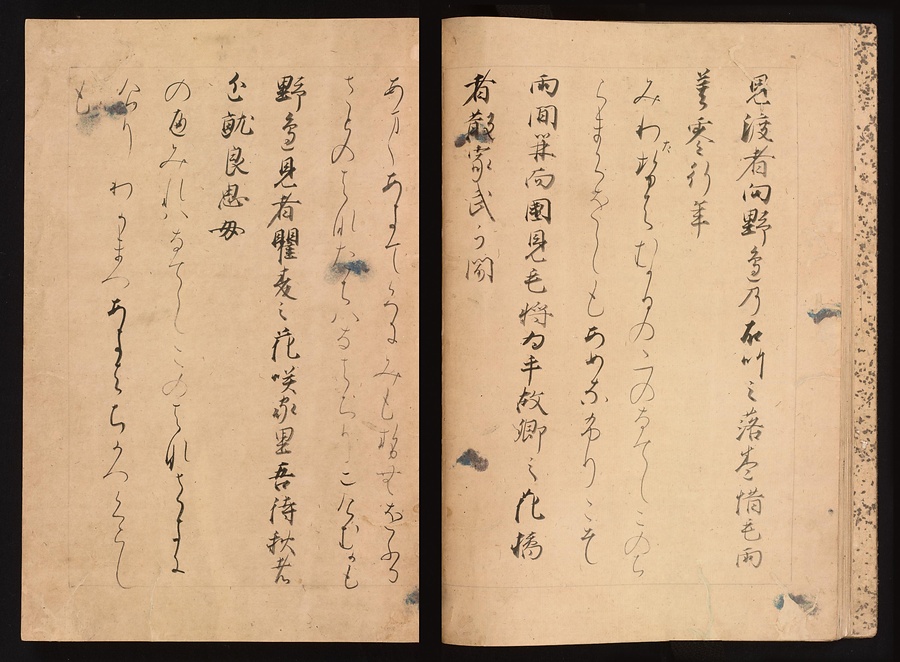 見渡者向野邊乃石竹之落巻惜毛雨
莫零行年
みわたせはむかひのゝのなてしこのち
らまくをしもあめなふりこそ
雨間開而國見毛将為乎故郷之花橘
者散家武可聞
あまゝあけてくにみもせむをふる
さとのはなたちはなはちりにけむかも
野邊見者瞿麦之花咲家里吾待秋者
近就良思母
のへみれはなてしこのはなさきに
けりわかまつあきはちかつくらし
も